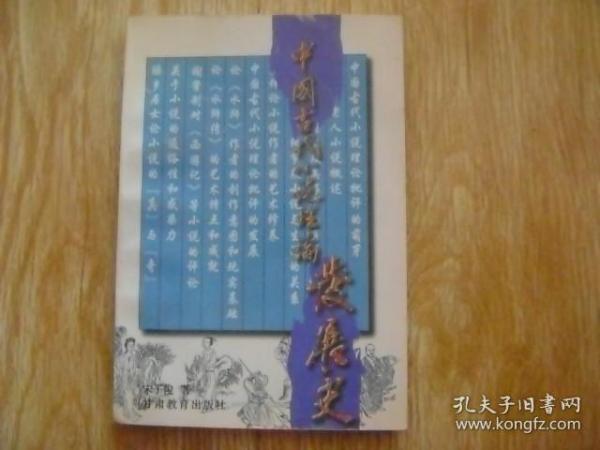 中国古代小说理论
發展史
中国古代小说理论批评的萌芽
人小说概述
论小说作者的艺术修养
中国古代小说理论批评的发展
论《水浒》作者的创作意图和现实基础
论《水浒传》的艺术特点和成就
对《西游记》等小说的评论
关于小说的通俗性和感染力
论小说的“真”与“奇”
著
甘肃教育出版社
孔夫子旧书网
www.kongfz.com